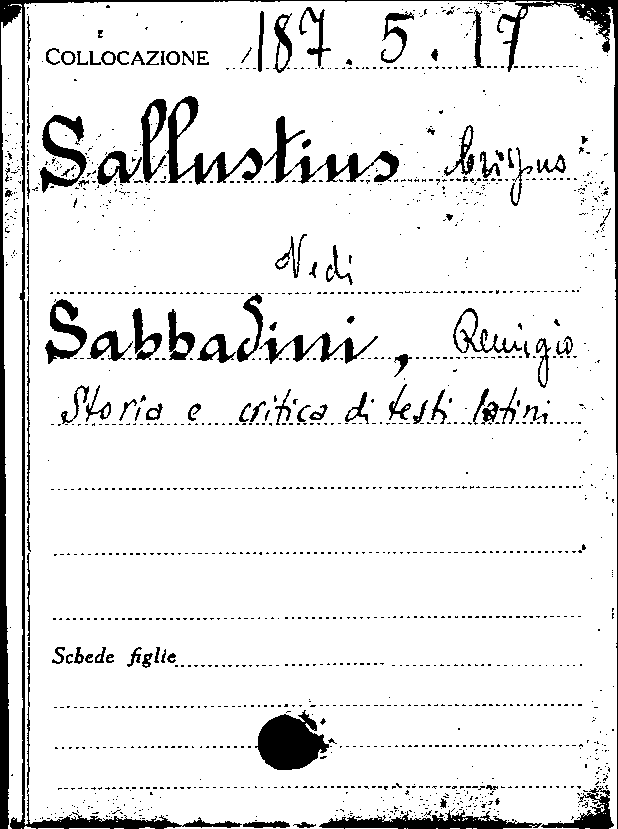 COLLOCAZIONE 187.5.17
Sallustius Crispus
Vedi
Sabbadini, Remigio
Storia e critica di testi latini
Schede figlie